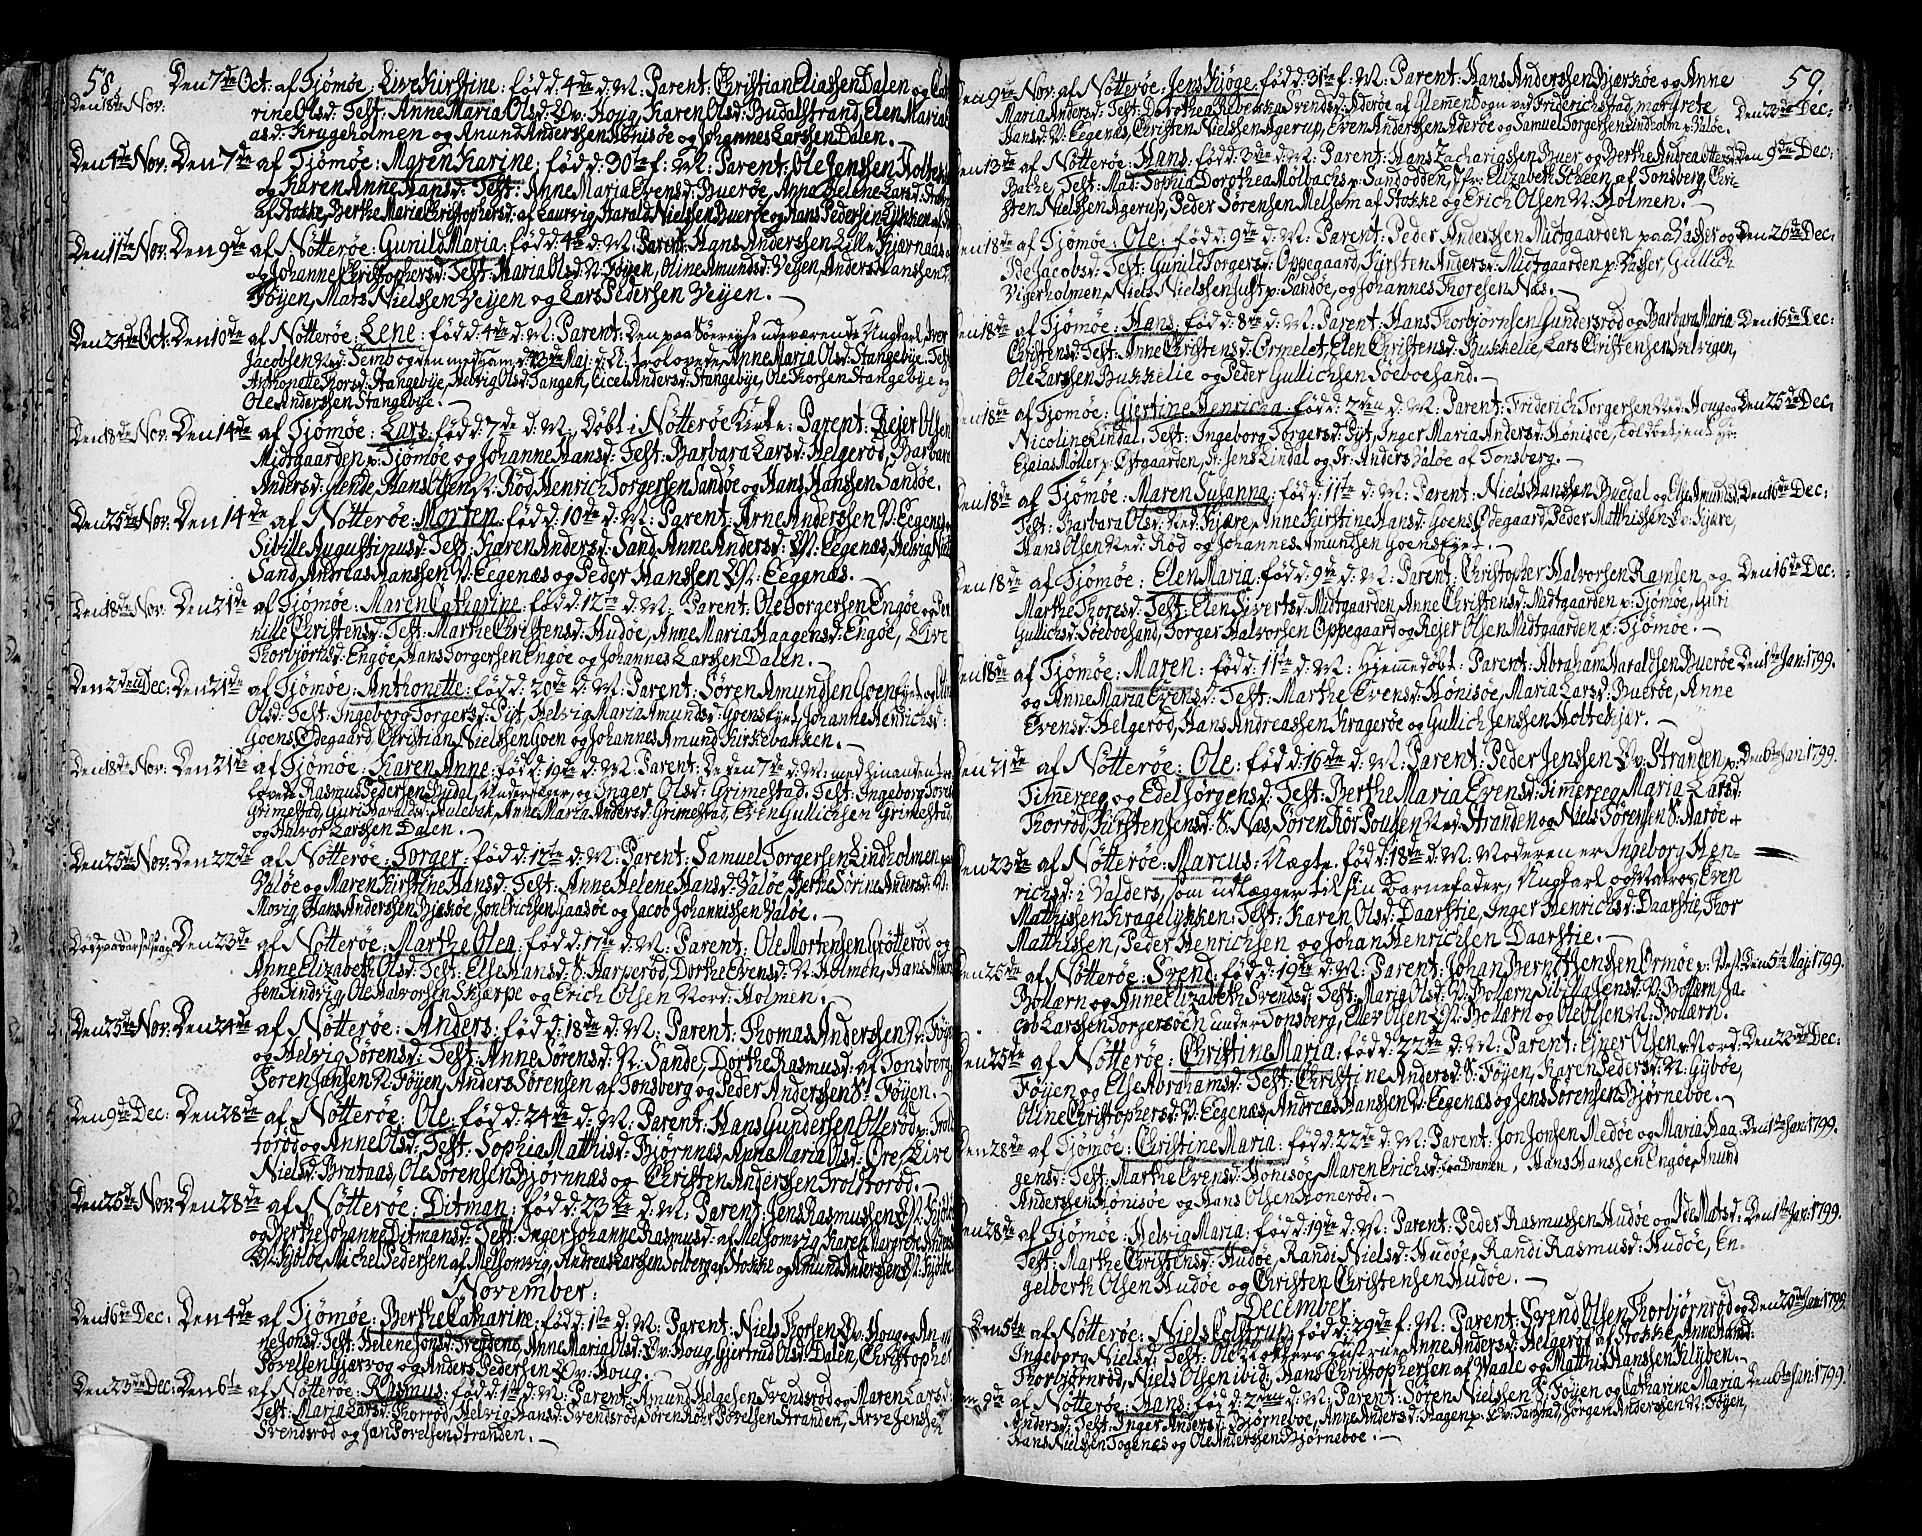 58.
Den 7de Oct. af Tjömöe: Live Kirstine: född: 4de d: M: Parent: Christian Eliassen Dalen og
Den 18de Nov:
rine Olsd: Test: Anne Maria Olsd: Ö: Houg, Karen Olsd: Budalstrand, Elen Maria
asd: Krugeholmen og Amund Anderssen Hönisöe og Johannes Larssen Dalen.
Den 4de Nov: Den 7de af Tjömöe: Maren Karine: född: 30te f: M: Parent: Ole Jenssen Holte
og Karen Anne Hansd: Test: Anne Maria Evensd: Bueröe, Anna Helene Larsd:
af Stokke, Berthe Maria Christophersd: af Laurvig, Harald Nielssen Bueröe og Hans Pedersen Lykken af
Den 11te Nov: Den 9de af Nötteröe: Gunild Maria: född: 4de d: M: Parent: Hans Anderssen Lille Kjærnaas
og Johanne Christophersd: Test: Maria Olsd: N: Föyen, Oline Amundsd: Vejen, Anders Hanssen
Föyen, Mats Nielssen Vejen og Lars Pedersen Vejen. —
Den 24de Oct: Den 10de af Nötteröe: Lene: född: 4de d: M: Parent: Den paa Söereyse udeværende Ungkarl, Iver
Jacobsen Ned: Temb og den med ham d: 13de Maj: d: A: trolovede Anne Maria Olsd: Stangebye. Test:
Anthonette Thorsd: Stangebye, Helvig Olsd: Tangen, Cicel Andersd: Stangebye, Ole Thorsen Stangebye og
Ole Anderssen Stangebye. —
Den 18de Nov: Den 14de af Tjömöe: Lars: född: 7de d: M: Döbt i Nötteröe Kirke: Parent: Rejer Olsen
Midtgaarden p: Tjömöe og Johanne Hansd: Test: Barbara Larsd: Helgeröd, Barbara
Andersd: Glende, Hans Olsen N: Röd, Henrich Torgersen Sandöe og Hans Hanssen Sandöe.
Den 25de Nov: Den 14de af Nötteröe: Morten: född: 10de d: M: Parent: Arne Anderssen V: Eegenes
Sibille Augustinusd: Test: Karen Andersd: Sand, Anne Andersd: M: Eegenæs, Helvig
Sand, Andreas Hanssen V: Eegenæs og Peder Hanssen M: Eegenæs.
Den 18de Nov: Den 21de af Tjömöe: Maren Catharine: född: 12te d: M: Parent: Ole Torgersen Engöe og Per
nille Christensd: Test: Marthe Christensd: Hudöe, Anne Maria Haagensd: Engöe, Live
Thorbjörnsd: Engöe, Hans Torgersen Engöe og Johannes Larssen Dalen. —
Den 2den Dec: Den 21de af Tjömöe: Anthonette: född: 20de d: M: Parent: Sören Amundsen Goensfyet og
Olsd: Test: Ingeborg Torgersd: Pÿt, Helvig Maria Amundsd: Goensfyet, Johanne Henrichsd:
Goens Ödegaard, Christian Nielssen Goen og Johannes Amunds: Kirkebakken. —
Den 18de Nov: Den 21de af Tjömöe: Karen Anne: född: 19de d: M: Parent: De den 7de d: M: med hinanden tro
lovede Rasmus Pedersen Bjudal, Underjæger og Inger Olsd: Grimestad. Test: Ingeborg
Grimestad, Guri Haralds: Hulebak, Anne Maria Andersd: Grimestad, Even Gullichsen Grimestad,
og Halvor Larssen Dalen. —
Den 25de Nov: Den 22de af Nötteröe: Torger: född: 12te d: M: Parent: Samuel Torgersen Lindholmen
Valöe og Maren Kirstine Hansd: Test: Anne Helene Hansd: Valöe, Berthe Sörine Andersd: N:
Movig, Hans Anderssen Bjerköe, Jon Erichsen Gaasöe og Jacob Johannissen Valöe. —
Den 23de af Nötteröe: Marthe Olea: född: 17de d: M: Parent: Ole Mortensen Grötteröd og
Anne Elizabeth Olsd: Test: Else Hansd: S: Harperöd, Dorthe Evensd: N: Holmen, Hans
sen Tindvig, Ole Halvorsen Skjerpe og Erich Olsen Nord: Holmen. —
Den 25de Nov: Den 24de af Nötteröe: Anders: född: 18de d: M: Parent: Thomas Anderssen N: Föyen
og Helvig Sörensd: Test: Anne Sörensd: N: Sande, Dorthe Rasmusd: af Tonsberg,
Sören Jansen N: Föyen, Anders Sörensen af Tonsberg og Peder Anderssen N: Föyen.
Den 9de Dec: Den 28de af Nötteröe: Ole: född: 24de d: M: Parent: Hans Gundersen Olleröd p: Trold
toröd og Anne Olsd: Test: Sophia Matthisd: Björnnæs, Anne Maria Olsd: Öre, Live
Nielsd: Brataas, Ole Sörensen Bjørnnæs og Christen Anderssen Troldtoröd. —
Den 25de Nov: Den 28de af Nötteröe: Ditman: född: 23de d: M: Parent: Jens Rasmussen M: Kjölöe
og Berthe Johanne Ditmansd: Test: Inger Johanne Rasmusd: af Melsomvig, Karen Margrethe
M: Kjölöe, Michel Pedersen af Melsomvig, Andreas Larssen Solberg af Stokke og Amund Anderssen M: Kjölöe
November:
Den 16de Dec: Den 4de af Tjömöe: Berthe Catharine: född: 1te d: M: Parent: Niels Thorsen Öv: Houg og An-
ne Jonsd: Test: Helene Jonsd: Treidene, Anne Maria Olsd: Öv: Houg, Giertrus Olsd: Dalen, Christopher
Povelsen Gjervog og Anders Pedersen Öv: Houg. —
Den 23de Dec: Den 6te af Nötteröe: Rasmus: född: 1te d: M: Parent: Amund Helgesen Svendsröd og Maren Larsd:
Test: Maria Larsd: Thorröd, Helvig Hansd: Svendsröd, Sören Rohr Povelsen Stranden, Arve Jenssen
Svendsröd og Jan Povelsen Stranden. —
59.
Den 9de Nov: af Nötteröe: Jens Kjöge: född: 31te f: M: Parent: Hans Anderssen Bjerköe og Anne
Maria Andersd: Test: Dorothea Rebekka Svendsd: Aderöe af Glemmen Sogn ved Friderichstad, Margrete Den 23de Dec:
Hansd: V: Eegenæs, Christen Nielssen Agerup, Even Anderssen Aderöe og Samuel Torgersen Lindholm p: Valöe.
Den 13de af Nötteröe: Hans: född: 3de d: M: Parent: Hans Zachariassen Buer og Berthe Andrea Ottersd: Den 9de Dec:
Bache. Test: Mad: Sophia Dorothea Mölbachs p: Sandodden, Jfr: Elizabeth Steen af Tonsberg, Chri-
sten Nielssen Agerup, Peder Sörensen Melsom af Stokke og Erich Olsen N: Holmen. —
Den 18de af Tjömöe: Ole: född: 9de d: M: Parent: Peder Anderssen Midtgaarden paa Vasser og Den 26de Dec:
Ide Jacobsd: Test: Gunild Torgersd: Oppegaard, Kirsten Andersd: Midtgaarden p: Vasser, Gullich
Vigerholmen, Niels Nielssen Just p: Sandöe, og Johannes Thoresen Næs. —
Den 18de af Tjömöe: Hans: född: 8de d: M: Parent: Hans Thorbjørnsen Gundersröd og Barbara Maria Den 16de Dec:
Christensd: Test: Anne Christensd: Ormelet, Elen Christensd: Bukkelie, Lars Christensen Salvigen,
Ole Larssen Bukkelie og Peder Gullichsen Söeboesand. —
Den 18de af Tjömöe: Giertine Henricha: född: 2den d: M: Parent: Friderich Torgersen Ned: Houg og Den 25de Dec:
Nicoline Lindal. Test: Ingeborg Torgersd: Pÿt, Inger Maria Andersd: Hönisöe, Toldbetjent Hr:
Esaias Möller p: Östgaarden, Sr: Jens Lindal og Sr: Anders Valöe af Tonsberg. —
Den 18de af Tjömöe: Maren Susanna: född: 11te d: M: Parent: Niels Hanssen Buedal og Else Amundsd: Den 16de Dec:
Test: Barbara Olsd: Ned: Kjære, Anne Kirstine Hansd: Goens Ödegaard, Peder Matthissen Öv: Kjære,
Hans Olsen Ned: Röd og Johannes Amundsen Goensfyet. —
Den 18de af Tjömöe: Elen Maria: född: 9de d: M: Parent: Christopher Halvorsen Ramsen og Den 16de Dec:
Marthe Thoresd: Test: Elen Sivertsd: Midtgaarden, Anne Christensd: Midtgaarden p: Tjömöe, Guri
Gullichsd: Söeboesand, Torger Halvorsen Oppegaard og Rejer Olsen Midtgaarden p: Tjömöe. —
Den 18de af Tjömöe: Maren: född: 11te d: M: Hjemedöbt: Parent: Abraham Haraldsen Bueröe Den 1te Jan: 1799.
og Anne Maria Evensd: Test: Marthe Evensd: Hönisöe, Maria Larsd: Bueröe, Anne
Evensd: Helgeröd, Hans Andreassen Krageröe og Gullich Jenssen Holtekjer. —
Den 21de af Nötteröe: Ole: född: 16de d: M: Parent: Peder Jenssen Öv: Stranden p: Den 6te Jan: 1799.
Timereeg og Edel Jörgensd: Test: Berthe Maria Evensd: Timereeg, Maria Larsd:
Thorröd, Kirsten Jensd: S: Næs, Sören Rör Poulsen Ned: Stranden og Niels Sörensen S: Aaröe +
Den 23de af Nötteröe: Marcus: Uægte. född: 18de d: M: Moderen er Ingeborg Hen-
richsd: i Valders, som udlægger til sin Barnefader, Ungkarl og Matros, Even
Matthissen Kragelykken: Test: Karen Olsd: Daarstie, Inger Henrichsd: Daarstie, Thor
Matthissen, Peder Henrichsen og Johan Henrichsen Daarstie. —
Den 25de af Nötteröe: Svend: född: 19de d: M: Parent: Johan Berntssenssen Ormöe p: Vest: Den 5te Maj: 1799.
Bollærn og Anne Elizabeth Svendsd: Test: Maria Olsd: V: Bollærn, Sibilla Jensd: V: Bollærn, Ja-
cob Larssen Torgersöen under Tonsberg, Eller Olsen M: Bollærn og Ole Olsen V: Bollærn.
Den 25de af Nötteröe: Christine Maria: född: 22de d: M: Parent: Ejner Olsen Nord: Den 23de Dec:
Föyen og Else Abrahamsd: Test: Christine Andersd: S: Föyen, Karen Pedersd: N: Gyböe,
Oline Christophersd: V: Eegenæs, Andreas Hanssen V: Eegenæs og Jens Sörensen Björneböe. —
Den 28de af Tjömöe: Christine Maria: född: 22de d: M: Parent: Jon Jonsen Medöe og Maria Haa- Den 1te Jan: 1799.
gensd: Test: Marthe Evensd: Hönisöe, Maren Erichsd: fra Dramen, Hans Hanssen Engöe, Amund
Anderssen Hönisöe og Hans Olsen Honeröd. —
Den 28de af Tjömöe: Helvig Maria: född: 19de d: M: Parent: Peder Rasmussen Hudöe og Ide Matsd: Den 1te Jan: 1799.
Test: Marthe Christensd: Hudöe, Randi Nielsd: Hudöe, Randi Rasmusd: Hudöe, En-
gelberth Olsen Hudöe og Christen Christensen Hudöe. —
December:
Den 5te af Nötteröe: Niels Colstrup: född: 29de f: M: Parent: Svend Olsen Thorbjørnröd og Den 20de Jan: 1799.
Ingeborg Nielsd: Test: Ole Hustrue Anne Andersd: Helgeröf af Stokke, Anne
Thorbjørnröd, Niels Olsen ibid: Hans Christophersen af Vaale og Matthis Hanssen Klÿben. —
9de af Nötteröe: Hans: född: 2den d: M: Parent: Sören Nielssen S: Föyen og Catharine Maria Den 6te Jan: 1799.
Andersd: Test: Inger Andersd: Björneboe, Anne Andersd: Hagen p: Öv: Tanstad, Jörgen Anderssen N: Föyen,
Hans Nielssen Togenæs og Ole Anderssen Björneboe. —